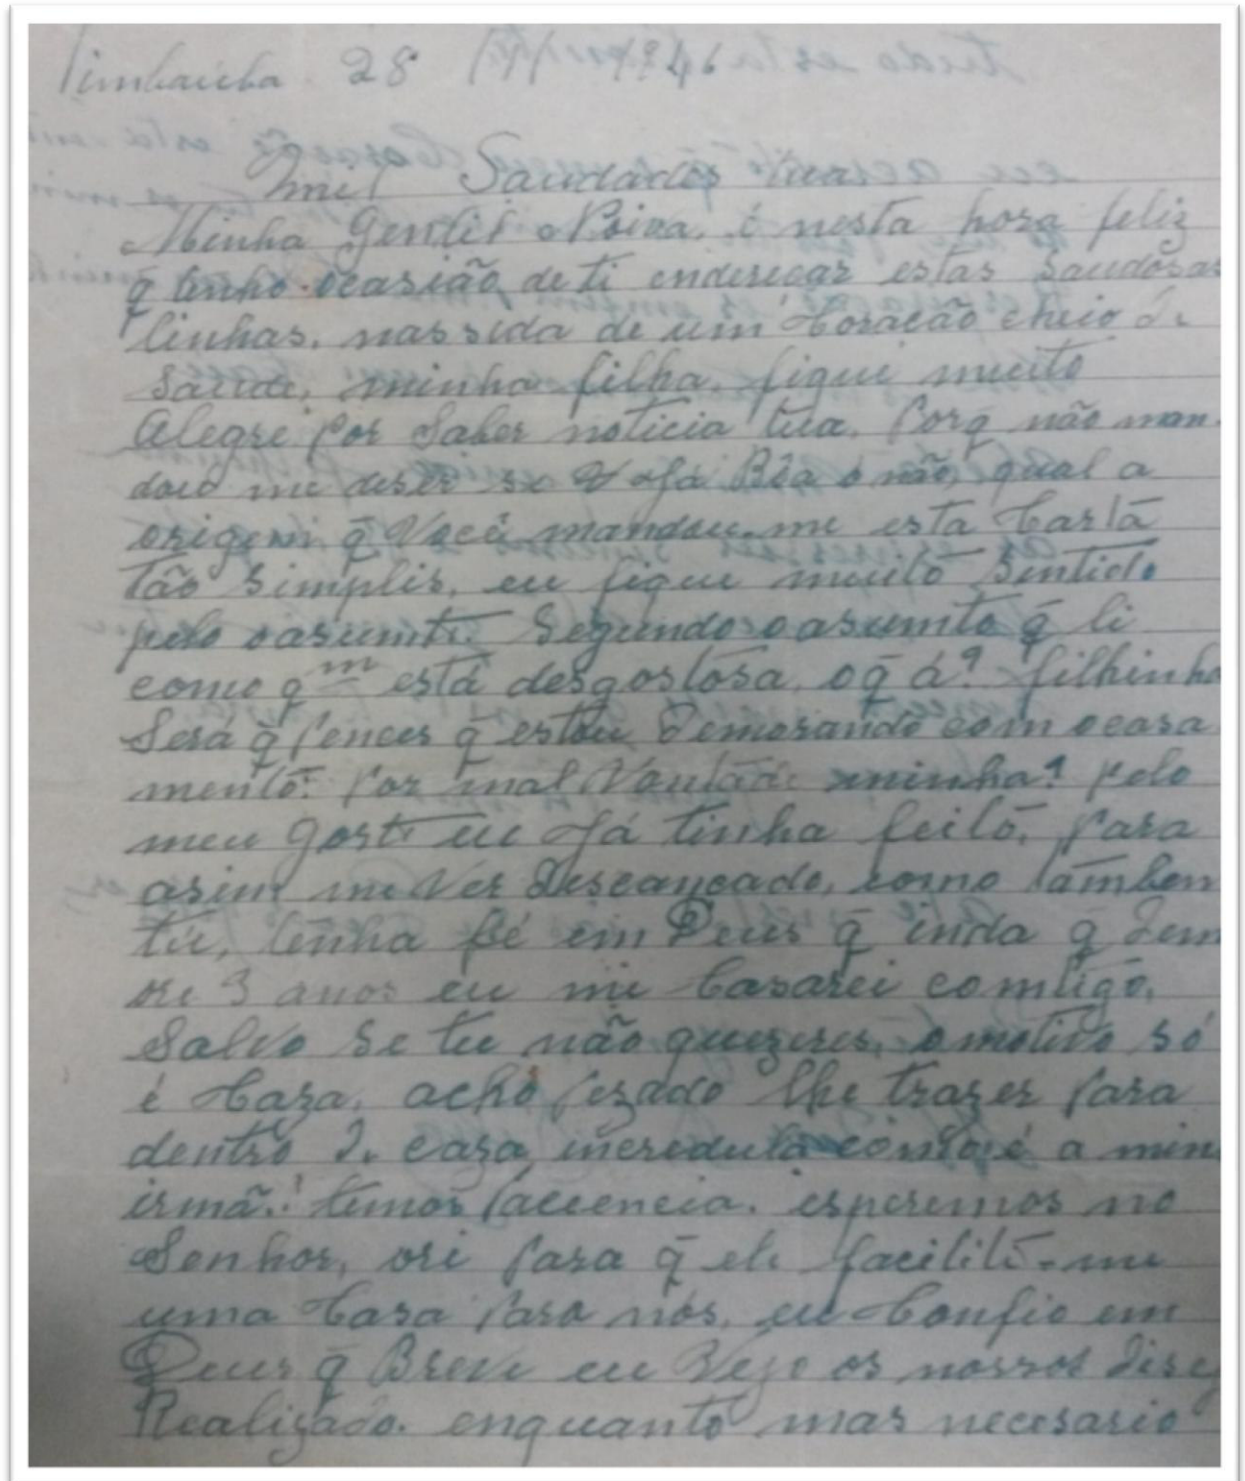 Timbauba 28 1946
Mil Saudades tuas
Minha Gentil Noiva, é nesta hora feliz
q̄ tenho ocasião de ti endereçar estas saudosas
linhas, nassida de um Coração cheio de
saude, minha filha, fiquei muito
Alegre por Saber noticia tua. Porq̄ não man-
dou me deser se Já Bôa o não, qual a
origem q̄ Você mandou-me esta Carta
tão simplis, eu fique muito sentido
pelo o asunto. Segundo o asunto q̄ li
como q^m está desgostosa, oq̄ á? filhinha
Será q̄ pences q̄ estou Demorando com o casa
mento? Por mal Vontade minha? pelo
meu gosto eu Já tinha feito, Para
asim me Ver Descançado, como tãmbem
tu, tenha fé em Deus q̄ inda q̄ Dem
ore 3 anos eu mi Casarei comtigo,
Salvo se tu não quezeres, o motivo só
é Caza, acho pezado lhe trazer para
dentro de caza incredula como é a min
irmã: temos pacuencia. esperemos no
Senhor, ori para q̄ ele facilite-me
uma Casa Para nós, eu Confio em
Deus q̄ Breve eu Vejo os nossos Dise
Realizado. enquanto mas necesario